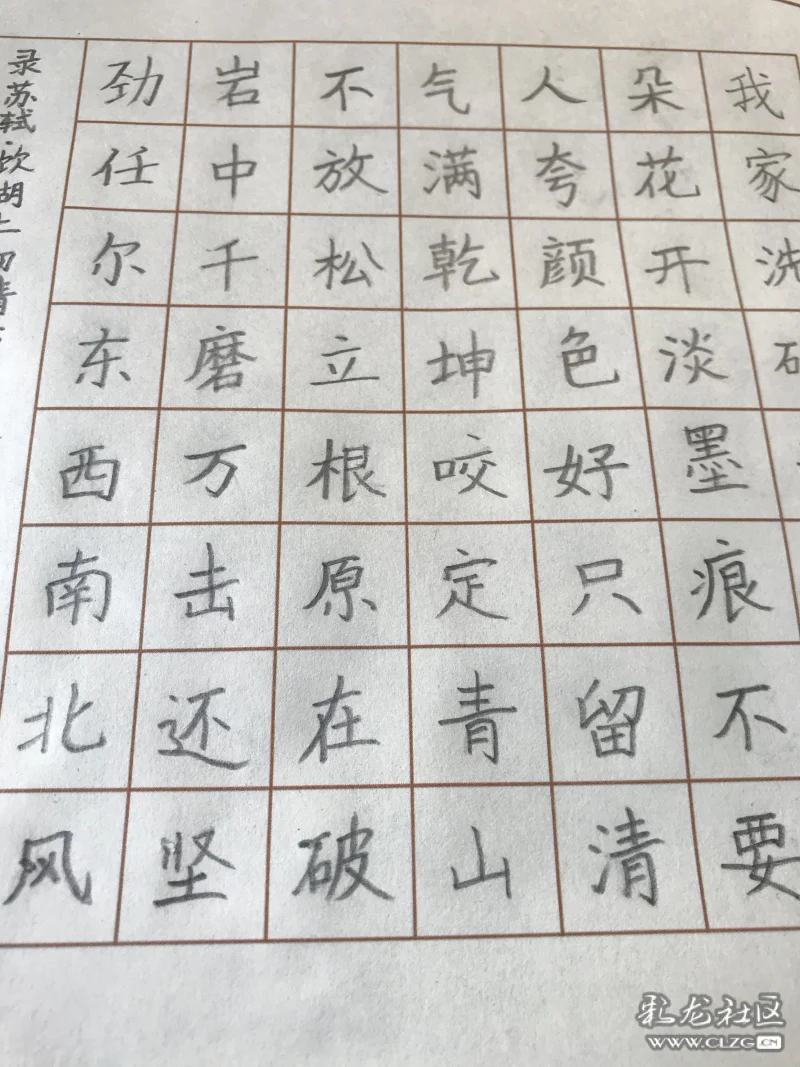 我家洗
朵花开淡墨痕不要
人夸颜色好只留清
气满乾坤咬定青山
不放松立根原在破
岩中千磨万击还坚
劲任尔东西南北风
录苏轼·饮湖上初晴
彩龙社区
WWW.CLZG.CN